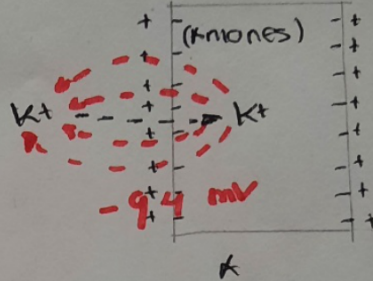 (Aniones)
K+ K+
- 94 mV
K